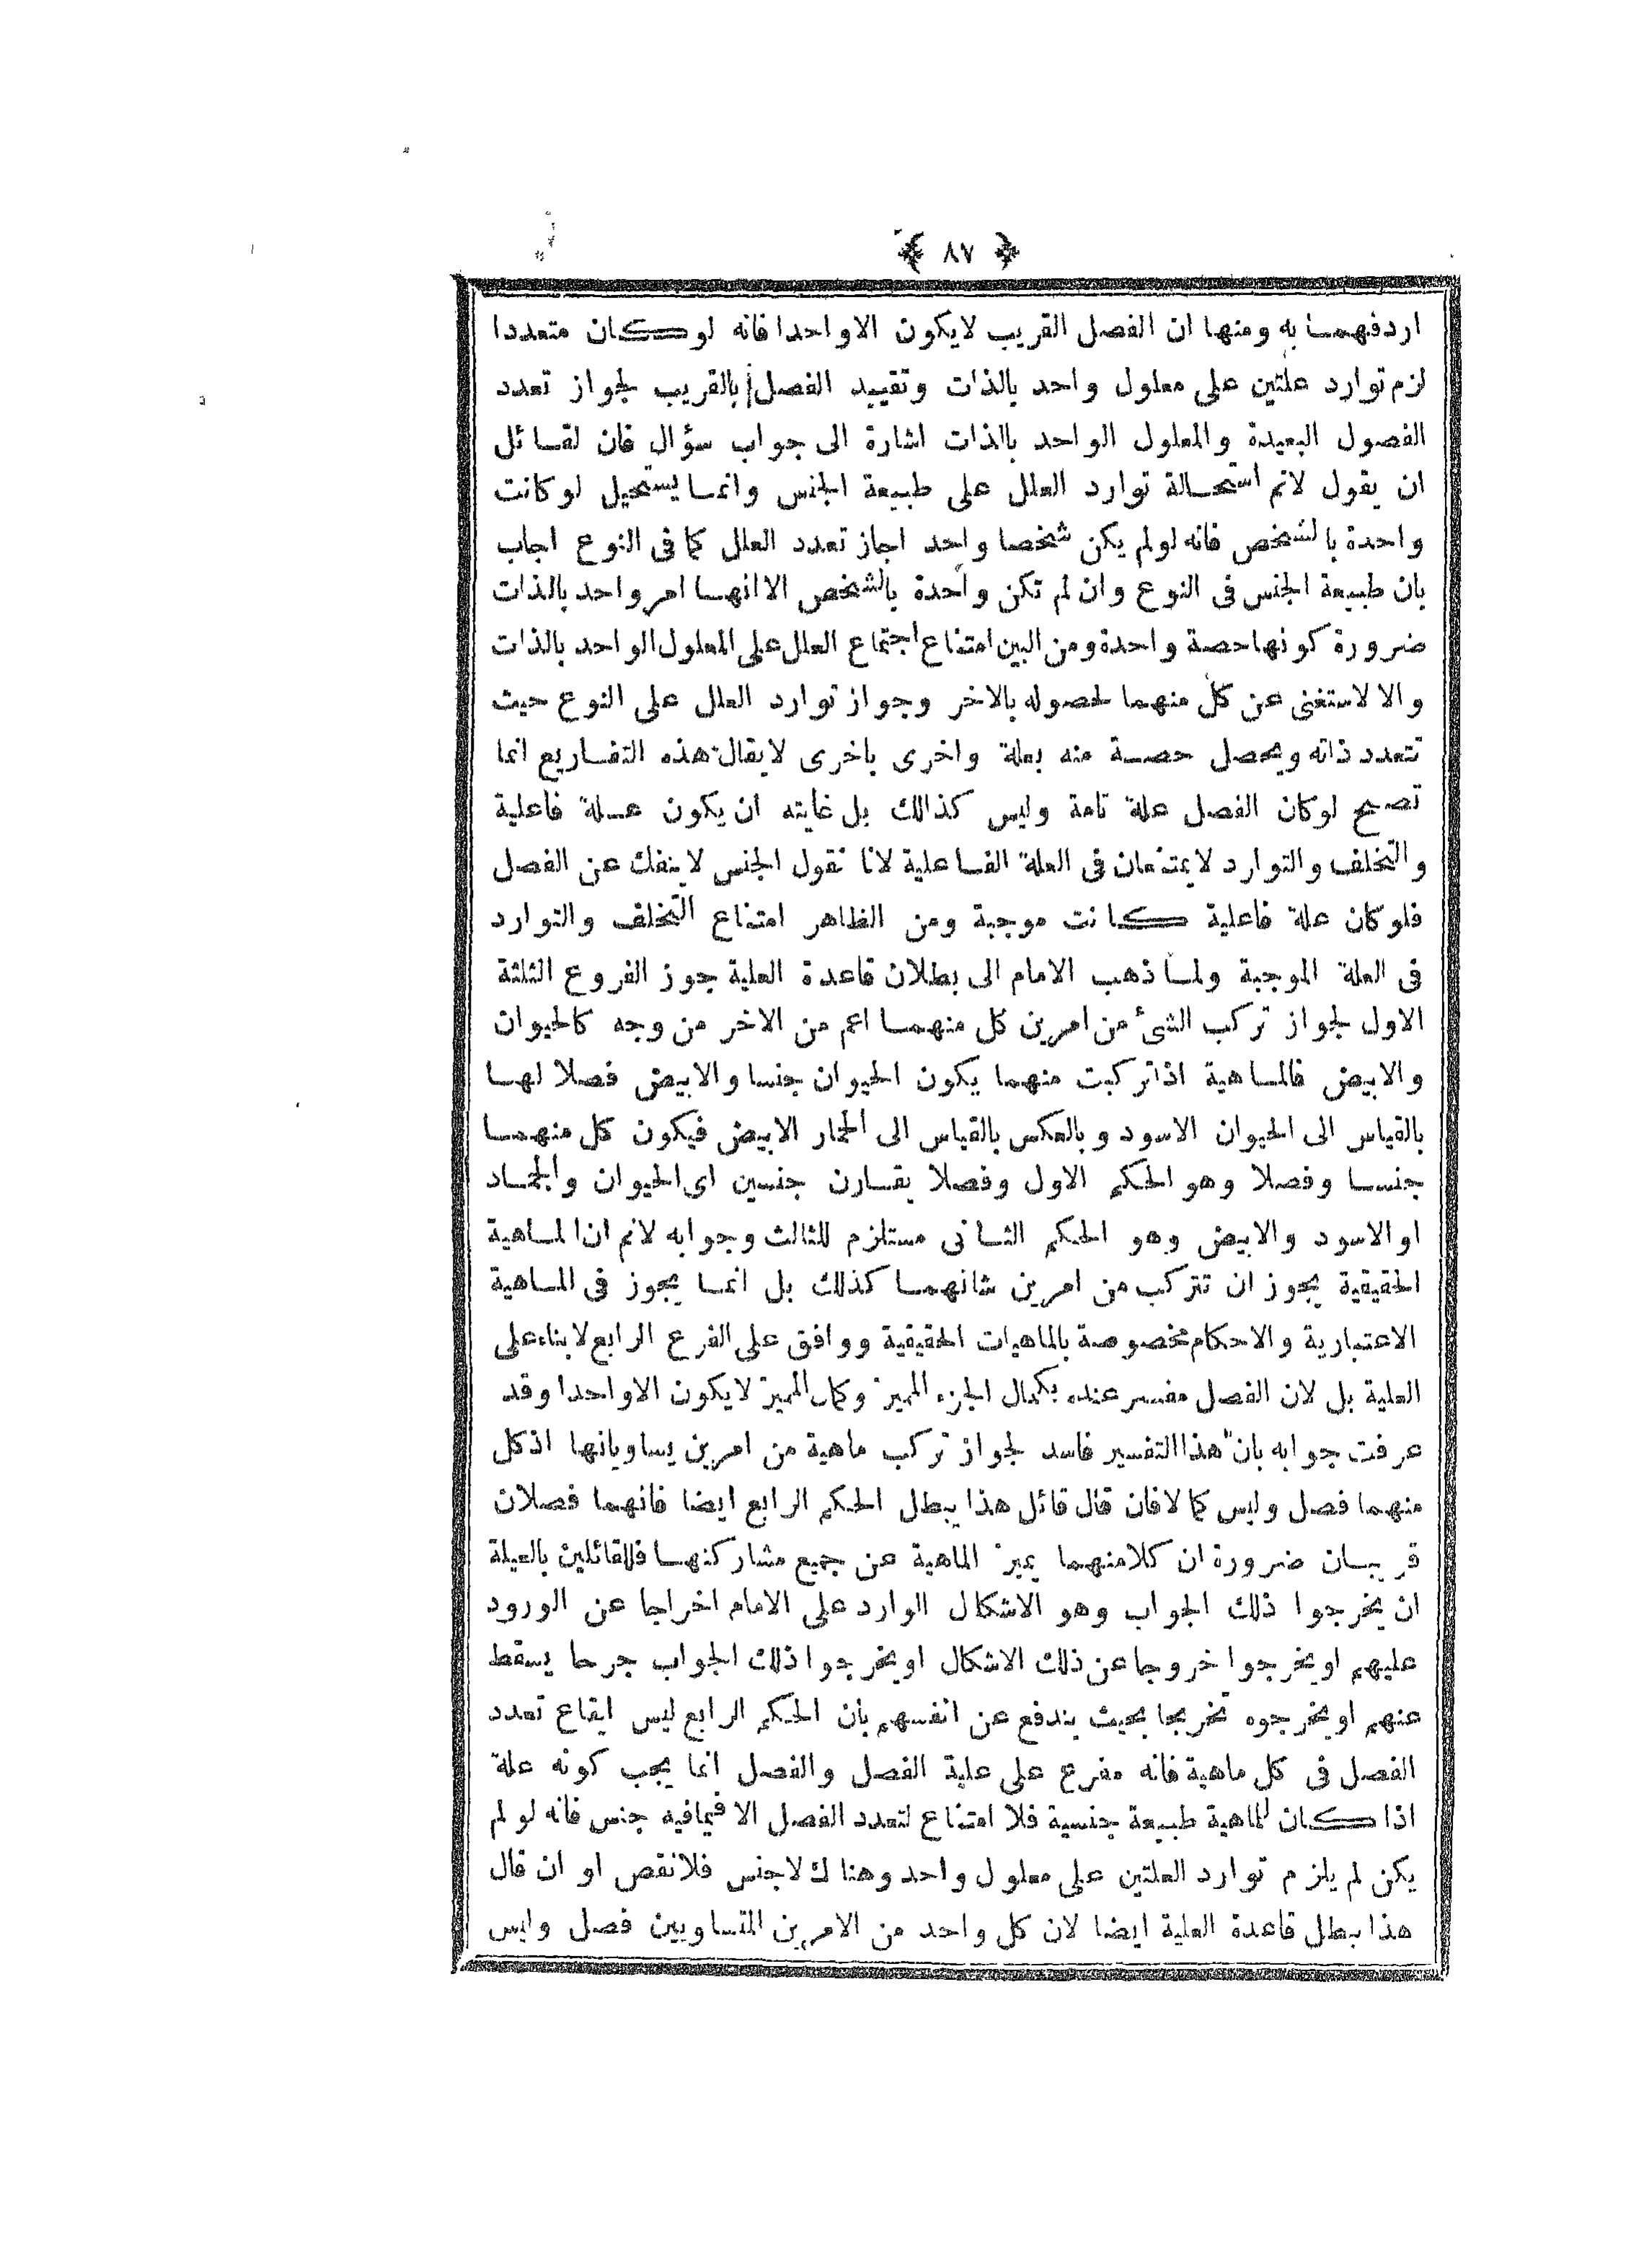 ﴿ ٨٧ ﴾
اردفهما به ومنها ان الفصل القريب لايكون الاواحدا فانه لوكان متعددا
لزم توارد علتين على معلول واحد بالذات وتقييد الفصل بالقريب لجواز تعدد
الفصول البعيدة والمعلول الواحد بالذات اشارة الى جواب سؤال فان لقائل
ان يقول لانم استحالة توارد العلل على طبيعة الجنس وانما يستحيل لوكانت
واحدة بالشخص فانه لولم يكن شخصا واحد اجاز تعدد العلل كما فى النوع اجاب
بان طبيعة الجنس فى النوع وان لم تكن واحدة بالشخص الاانها امر واحد بالذات
ضرورة كونها حصة واحدة ومن البين امتناع اجتماع العلل على المعلول الواحد بالذات
والا لاستغنى عن كل منهما لحصوله بالاخر وجواز توارد العلل على النوع حيث
تتعدد ذاته ويحصل حصة منه بعلة واخرى باخرى لايقال هذه التفاريع انما
تصح لوكان الفصل علة تامة وليس كذالك بل غايته ان يكون علة فاعلية
والتخلف والتوارد لايمتنعان فى العلة الفاعلية لانا نقول الجنس لاينفك عن الفصل
فلوكان علة فاعلية كانت موجبة ومن الظاهر امتناع التخلف والتوارد
فى العلة الموجبة ولما ذهب الامام الى بطلان قاعدة العلية جوز الفروع الثلثة
الاول لجواز تركب الشئ من امرين كل منهما اعم من الاخر من وجه كالحيوان
والابيض فالماهية اذاتركبت منهما يكون الحيوان جنسا والابيض فصلا لها
بالقياس الى الحيوان الاسود وبالعكس بالقياس الى الحجار الابيض فيكون كل منهما
جنسا وفصلا وهو الحكم الاول وفصلا يقارن جنسين اى الحيوان والجماد
اوالاسود والابيض وهو الحكم الثانى مستلزم للثالث وجوابه لانم ان الماهية
الحقيقية يجوز ان تتركب من امرين شانهما كذلك بل انما يجوز فى الماهية
الاعتبارية والاحكام مخصوصة بالماهيات الحقيقية ووافق على الفرع الرابع لابناء على
العلية بل لان الفصل مفسر عنده بكمال الجزء المميز وكمال المميز لايكون الاواحدا وقد
عرفت جوابه بان هذا التفسير فاسد لجواز تركب ماهية من امرين يساويانها اذكل
منهما فصل وليس كمالا فان قال قائل هذا يبطل الحكم الرابع ايضا فانهما فصلان
قريبان ضرورة ان كلامنهما يميز الماهية عن جميع مشاركتها فللقائلين بالعيلة
ان يخرجوا ذلك الجواب وهو الاشكال الوارد على الامام اخراجا عن الورود
عليهم اويخرجوا خروجا عن ذلك الاشكال اويخرجوا ذلك الجواب جرحا يسقط
عنهم اويخرجوه تخريجا بحيث يندفع عن انفسهم بأن الحكم الرابع ليس ايقاع تعدد
الفصل فى كل ماهية فانه مفرع على علية الفصل والفصل انما يجب كونه علة
اذا كان للماهية طبيعة جنسية فلا امتناع لتعدد الفصل الا فيمافيه جنس فانه لو لم
يكن لم يلزم توارد العلتين على معلول واحد وهناك لاجنس فلانقص او ان قال
هذا يبطل قاعدة العلية ايضا لان كل واحد من الامرين المتساويين فصل وليس